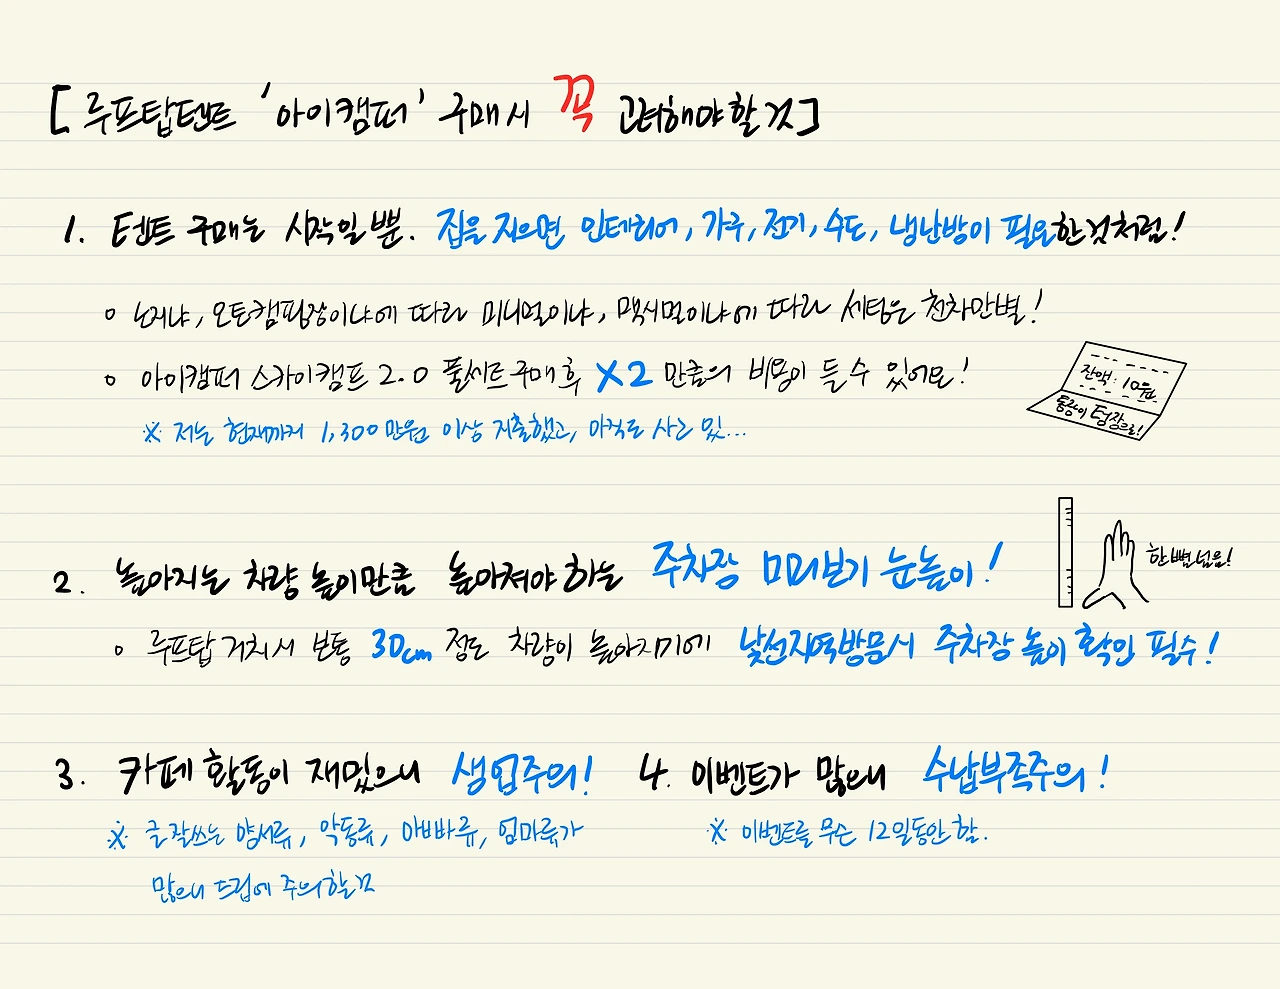 [루프탑텐트 '아이캠퍼' 구매시 꼭 고려해야할것]
1. 텐트 구매는 시작일뿐. 집을 지으면 인테리어, 가구, 전기, 수도, 냉난방이 필요한것처럼!
○ 노지냐, 오토캠핑장이냐에 따라 미니멀이냐, 맥시멀이냐에 따라 세팅은 천차만별!
○ 아이캠퍼 스카이캠프 2.0 풀세트 구매 후 X2 만큼의 비용이 들 수 있어요!
※ 저는 현재까지 1,300만원 이상 지출했고, 아직도 사고 있...
잔액: 10원
통장이 텅장으로!
2. 높아지는 차량 높이만큼 높아져야 하는 주차장 미리보기 눈높이!
한뼘넘음!
○ 루프탑 거치시 보통 30cm 정도 차량이 높아지기에 낯선지역방문시 주차장 높이 확인 필수!
3. 카페 활동이 재밌으니 생업주의!
※ 글 잘쓰는 양서류, 악동류, 아빠류, 엄마류가
많으니 드립에 주의할것
4. 이벤트가 많으니 수납부족주의!
※ 이벤트를 무슨 12일동안 함.